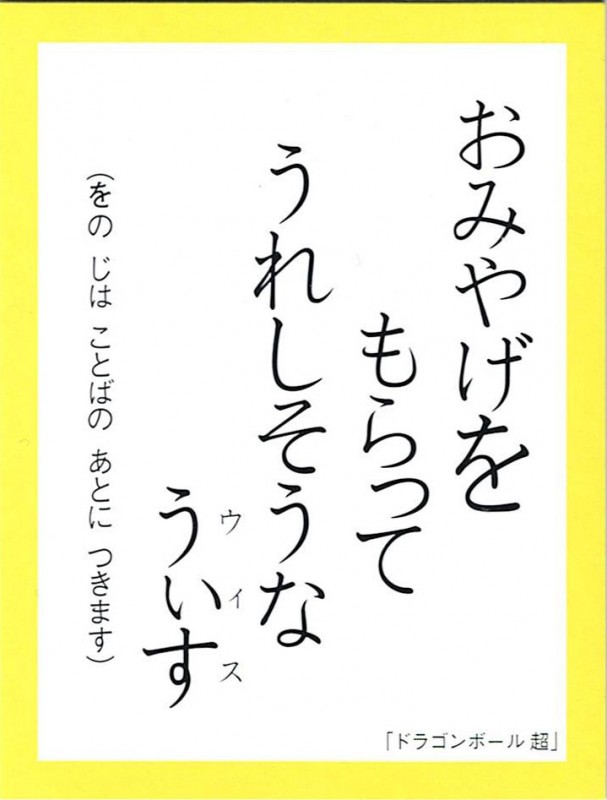 おみやげを
もらって
うれしそうな
ういす
ウイス
(をの じは ことばの あとに つきます)
「ドラゴンボール 超」